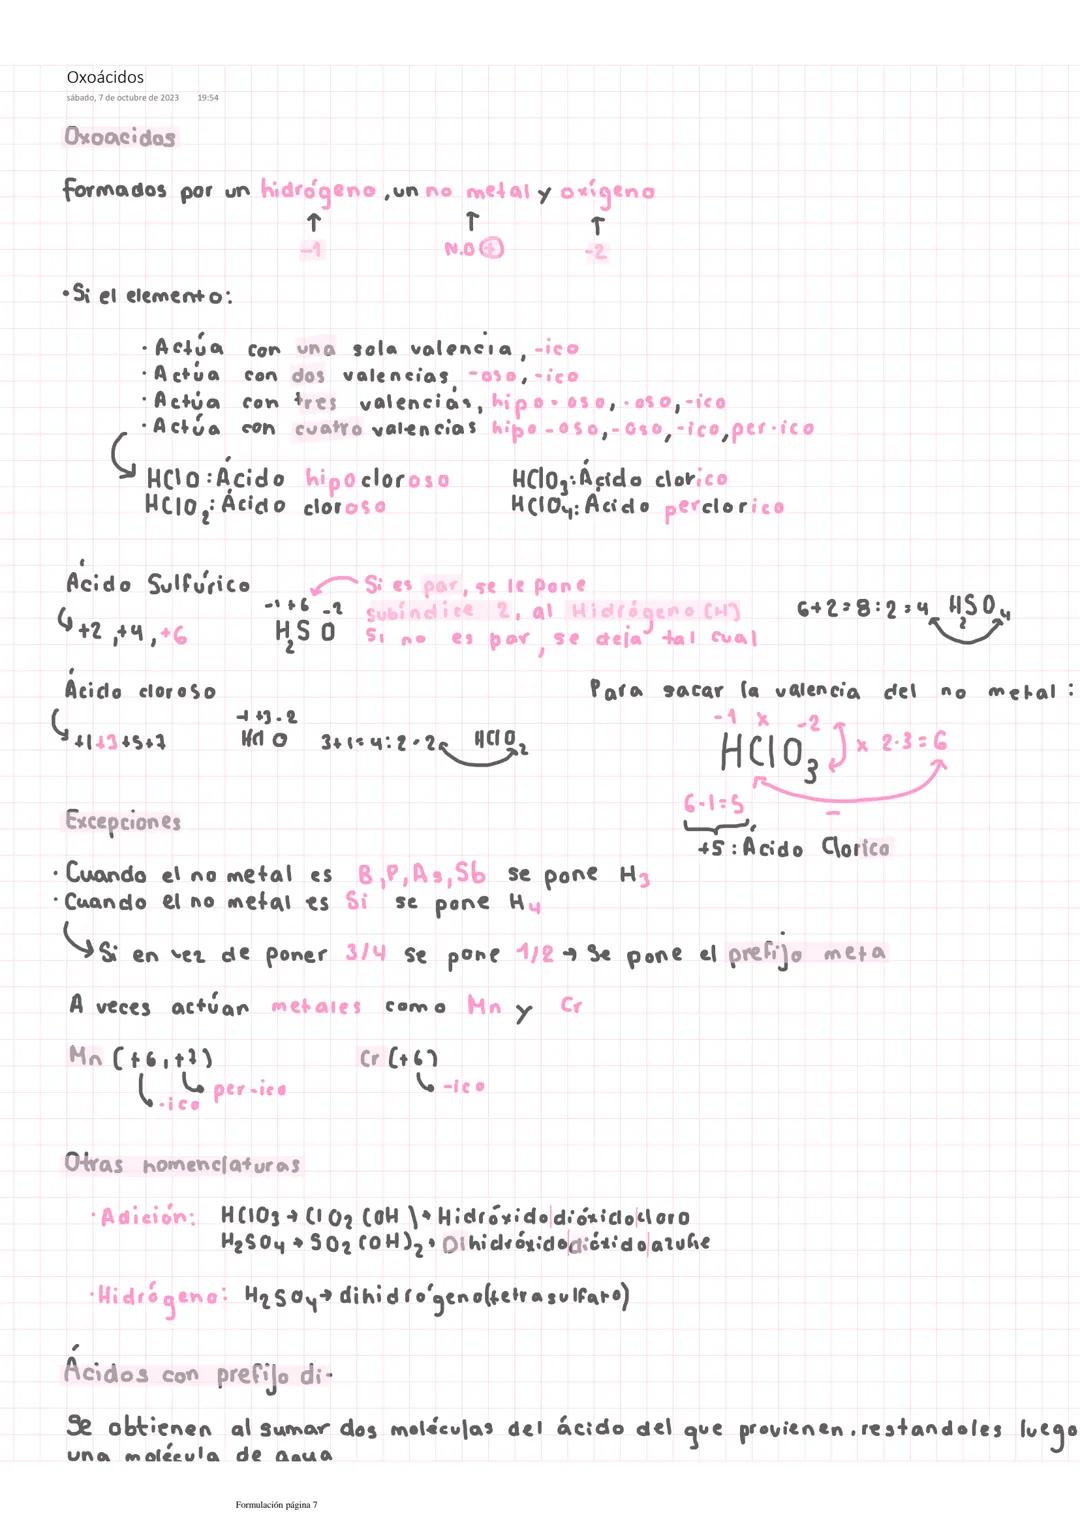 Oxoácidos
sábado, 7 de octubre de 2023 19:54
Oxoacidos
Formados por un hidrógeno, un no metal y oxígeno
↑ ↑ ↑
-1 N.O + -2
·Si el elemento:
· Actúa con una sola valencia, -ico
· Actúa con dos valencias, -oso, -ico
· Actúa con tres valencias, hipo-oso, -oso, -ico
· Actúa con cuatro valencias hipo-oso, -oso, -ico, per-ico
HClO: Ácido hipocloroso HClO₃: Ácido clorico
HClO₂: Ácido cloroso HClO₄: Ácido perclorico
Ácido Sulfúrico
+2, +4, +6
-1 +6 -2
H₂SO
Si es par, se le pone
subíndice 2, al Hidrógeno (H)
Si no es par, se deja tal cual
6+2=8:2=4 H₂SO₄
Ácido cloroso
+1 +3 +5 +7
-1 +3 -2
HClO 3+1=4:2=2 HClO₂
Para sacar la valencia del no metal:
-1 x -2
HClO₃ x 2·3=6
6-1=5 -
+5: Ácido Clorico
Excepciones
· Cuando el no metal es B, P, As, Sb se pone H₃
· Cuando el no metal es Si se pone H₄
Si en vez de poner 3/4 se pone 1/2 → Se pone el prefijo meta
A veces actúan metales como Mn y Cr
Mn (+6, +7) Cr (+6)
-ico per-ico -ico
Otras nomenclaturas
· Adición: HClO₃ → ClO₂ (OH) → Hidróxido|dióxido|cloro
H₂SO₄ → SO₂ (OH)₂ → Dihidróxido|dióxido|azufre
· Hidrógeno: H₂SO₄ → dihidrógeno(tetrasulfaro)
Ácidos con prefijo di-
Se obtienen al sumar dos moléculas del ácido del que provienen, restandoles luego
una molécula de agua
Formulación página 7